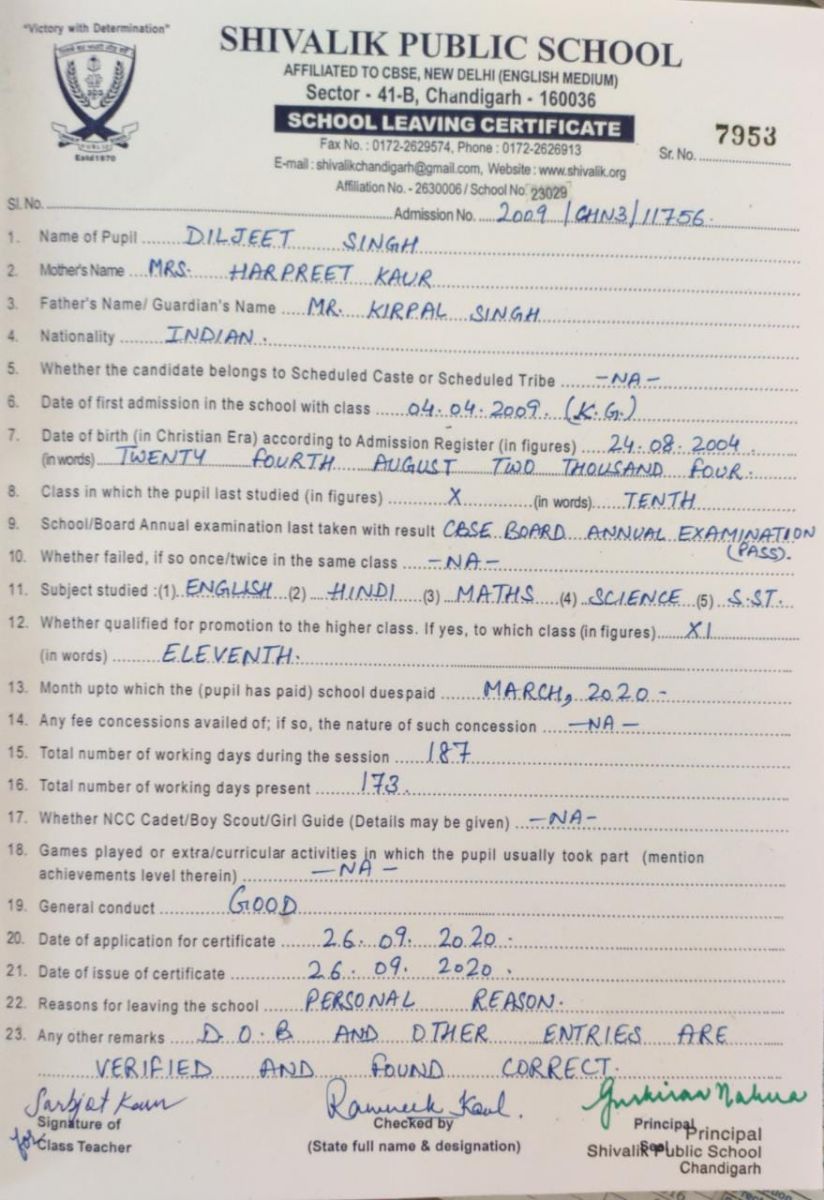 "Victory with Determination"
SHIVALIK PUBLIC SCHOOL
AFFILIATED TO CBSE, NEW DELHI (ENGLISH MEDIUM)
Sector - 41-B, Chandigarh - 160036
SCHOOL LEAVING CERTIFICATE
Fax No. : 0172-2629574, Phone : 0172-2626913
Sr. No. 7953
E-mail : shivalikchandigarh@gmail.com, Website : www.shivalik.org
Affiliation No. - 2630006 / School No. 23029
Estd 1970
Sl. No. Admission No. 2009 /CHN3/11756.
1. Name of Pupil DILJEET SINGH
2. Mother's Name MRS. HARPREET KAUR
3. Father's Name/ Guardian's Name MR. KIRPAL SINGH
4. Nationality INDIAN.
5. Whether the candidate belongs to Scheduled Caste or Scheduled Tribe -NA-
6. Date of first admission in the school with class 04.04.2009. (K.G.)
7. Date of birth (in Christian Era) according to Admission Register (in figures) 24.08.2004.
(in words) TWENTY FOURTH AUGUST TWO THOUSAND FOUR.
8. Class in which the pupil last studied (in figures) X (in words) TENTH
9. School/Board Annual examination last taken with result CBSE BOARD ANNUAL EXAMINATION
(PASS).
10. Whether failed, if so once/twice in the same class -NA-
11. Subject studied :(1) ENGLISH (2) HINDI (3) MATHS (4) SCIENCE (5) S.ST.
12. Whether qualified for promotion to the higher class. If yes, to which class (in figures) XI
(in words) ELEVENTH.
13. Month upto which the (pupil has paid) school duespaid MARCH, 2020 -
14. Any fee concessions availed of; if so, the nature of such concession -NA-
15. Total number of working days during the session 187
16. Total number of working days present 173.
17. Whether NCC Cadet/Boy Scout/Girl Guide (Details may be given) -NA-
18. Games played or extra/curricular activities in which the pupil usually took part (mention
achievements level therein) -NA-
19. General conduct GOOD
20. Date of application for certificate 26. 09. 2020.
21. Date of issue of certificate 26. 09. 2020.
22. Reasons for leaving the school PERSONAL REASON.
23. Any other remarks D.O.B AND OTHER ENTRIES ARE
VERIFIED AND FOUND CORRECT.
Sarbjot Kaur
Signature of
for Class Teacher
Checked by
(State full name & designation)
Principal
Seal
Principal
Shivalik Public School
Chandigarh